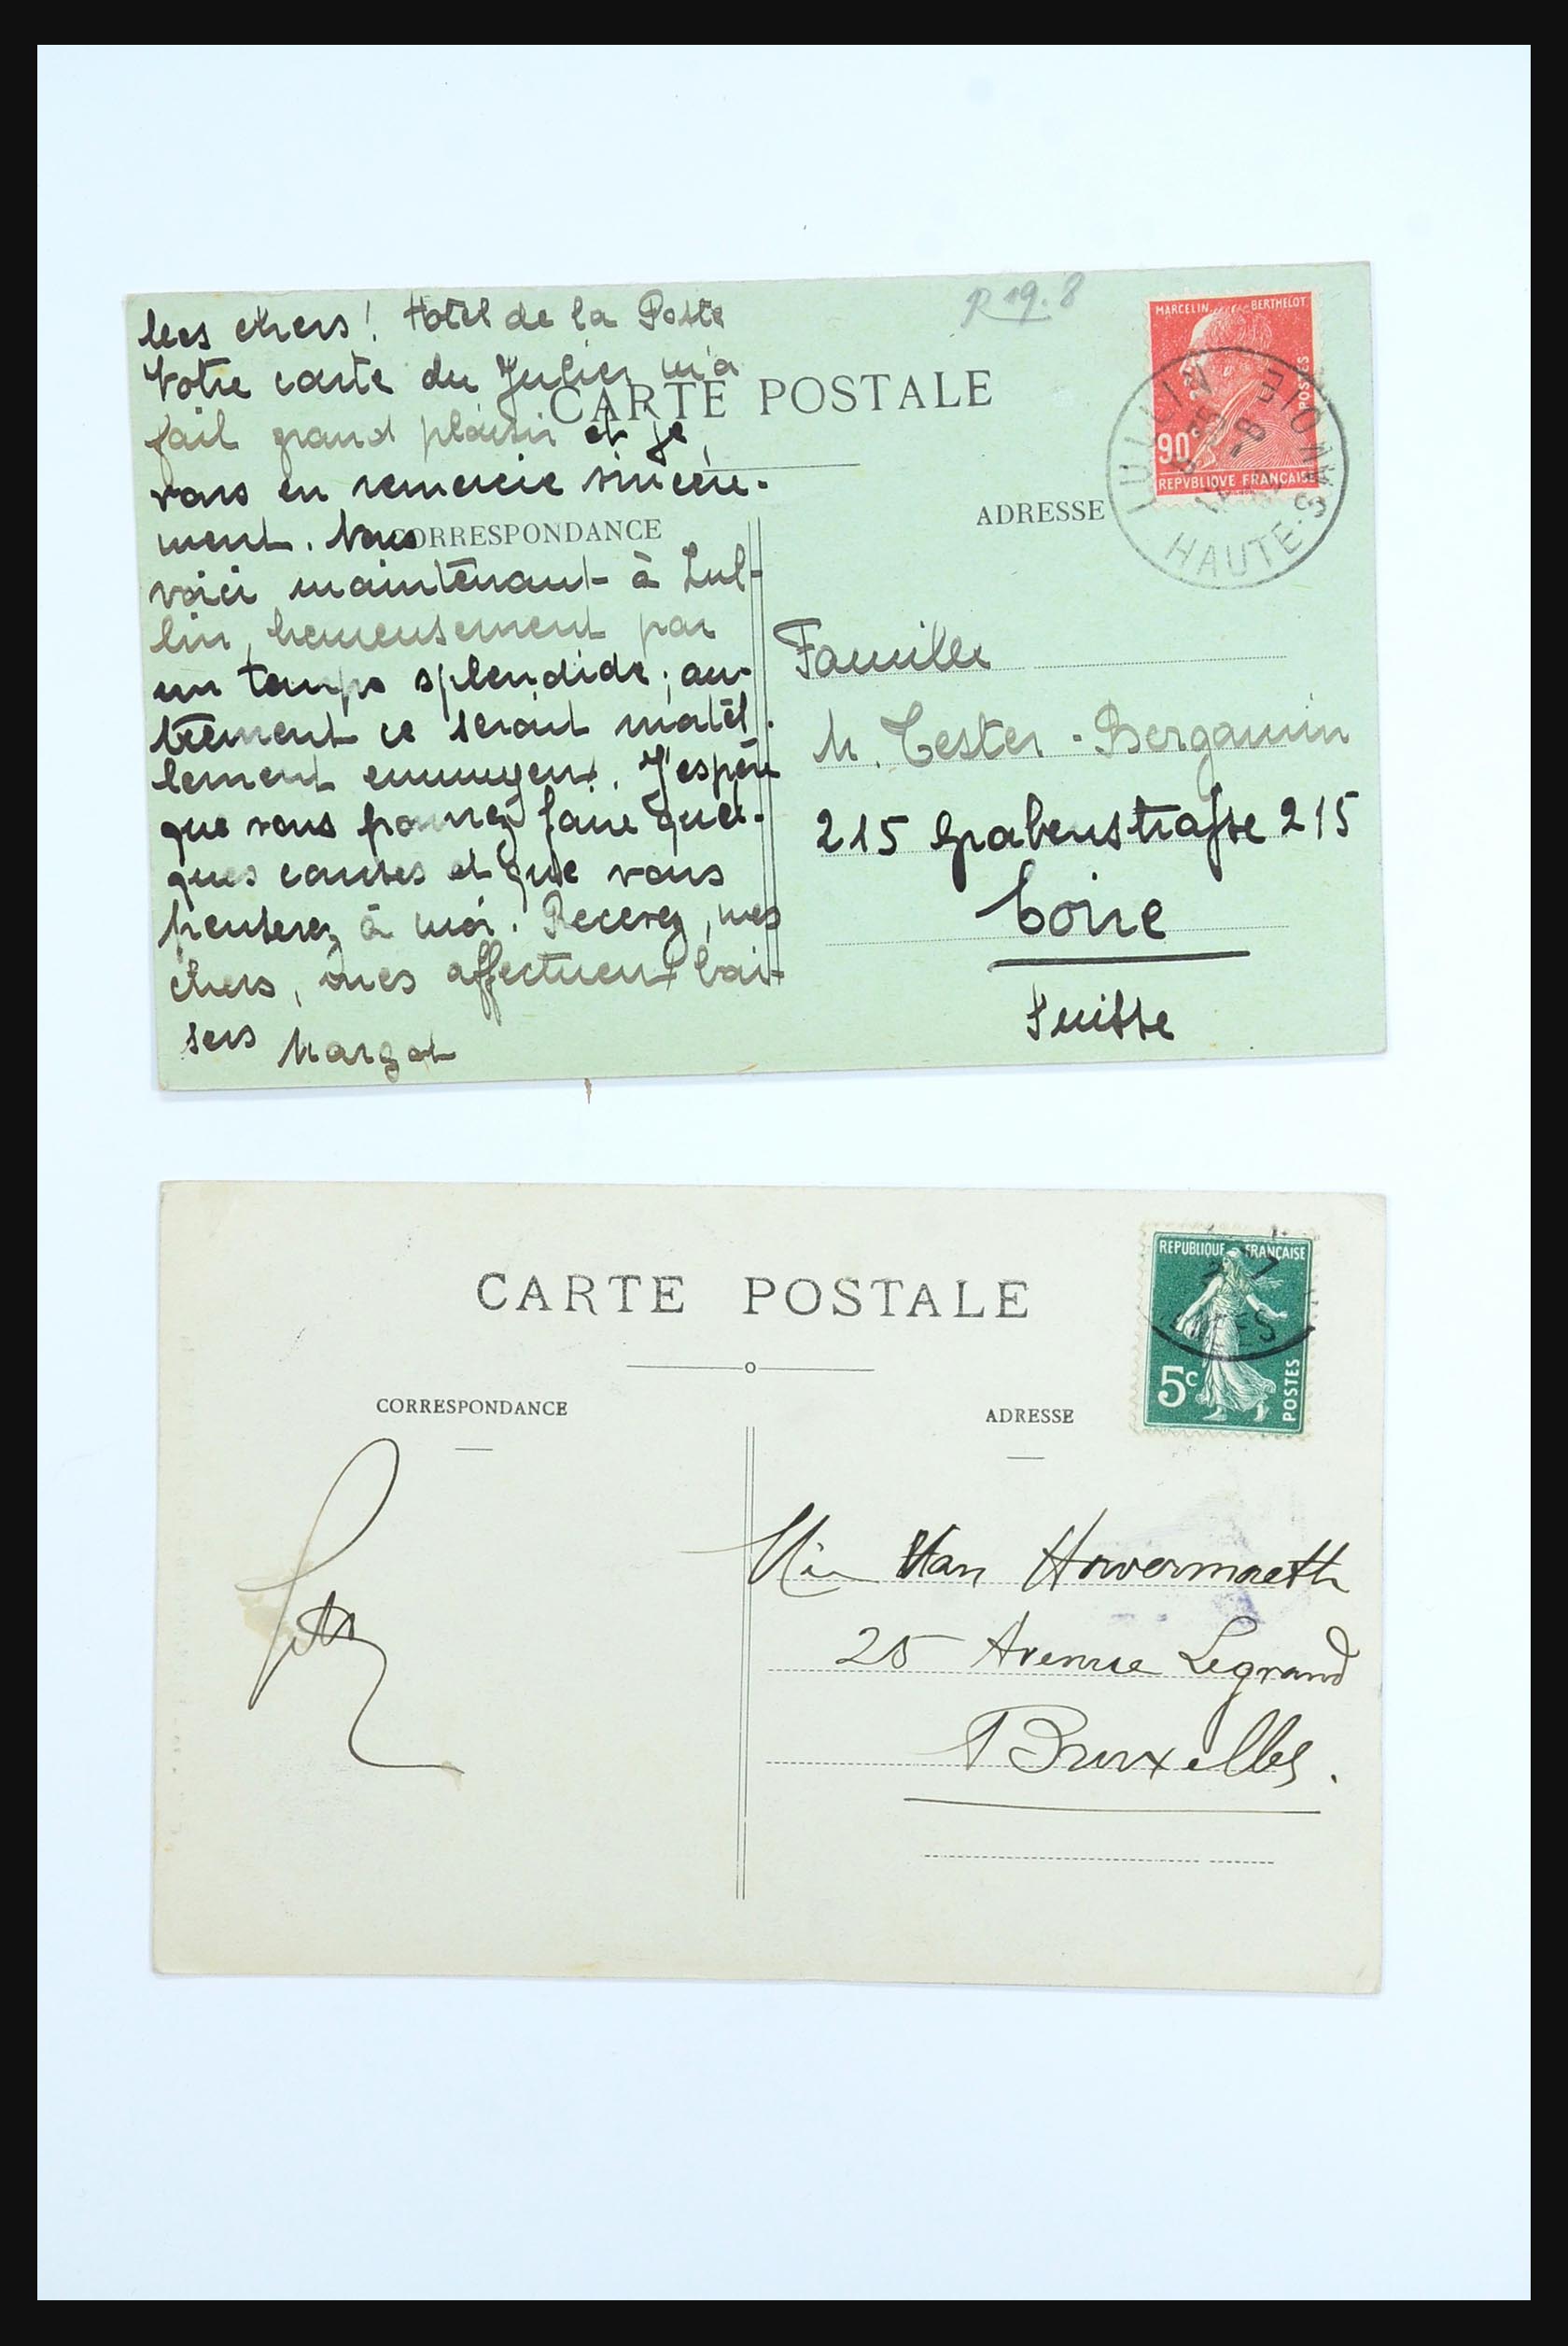 Mes chers! Hotel de la Poste
Votre carte du Julier m'a
fait grand plaisir et je
vous en remercie sincère-
ment. Nous
voici maintenant à Lul-
lin, heureusement par
un temps splendide; au-
trement ce serait matél
lement ennuyeux. J'espère
que vous pourrez faire quel-
ques courses et que vous
penserez à moi. Recevez, mes
chers, mes affectueux bai-
sers Margot
R 19.8
CARTE POSTALE
CORRESPONDANCE
ADRESSE
MARCELIN BERTHELOT
POSTES
90c
REPVBLIQVE FRANÇAISE
LULLIN
HAUTE-SAVOIE
Famille
M. Tester-Bergamin
215 Grabenstraße 215
Coire
Suisse
CARTE POSTALE
CORRESPONDANCE
ADRESSE
REPUBLIQUE FRANÇAISE
5c
POSTES
Van Howermaeth
25 Avenue Legrand
Bruxelles.